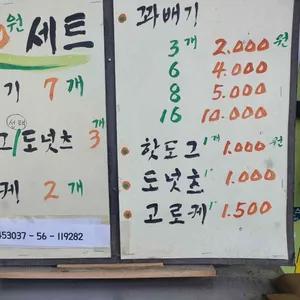 0원 세트
기 7개
선택
그/도넛츠 3개
케 2개
453037-56-119282
꽈배기
3개 2.000원
6 4.000
8 5.000
16 10.000
핫도그 1개 1.000원
도넛츠 1" 1.000
고로케 1" 1.500